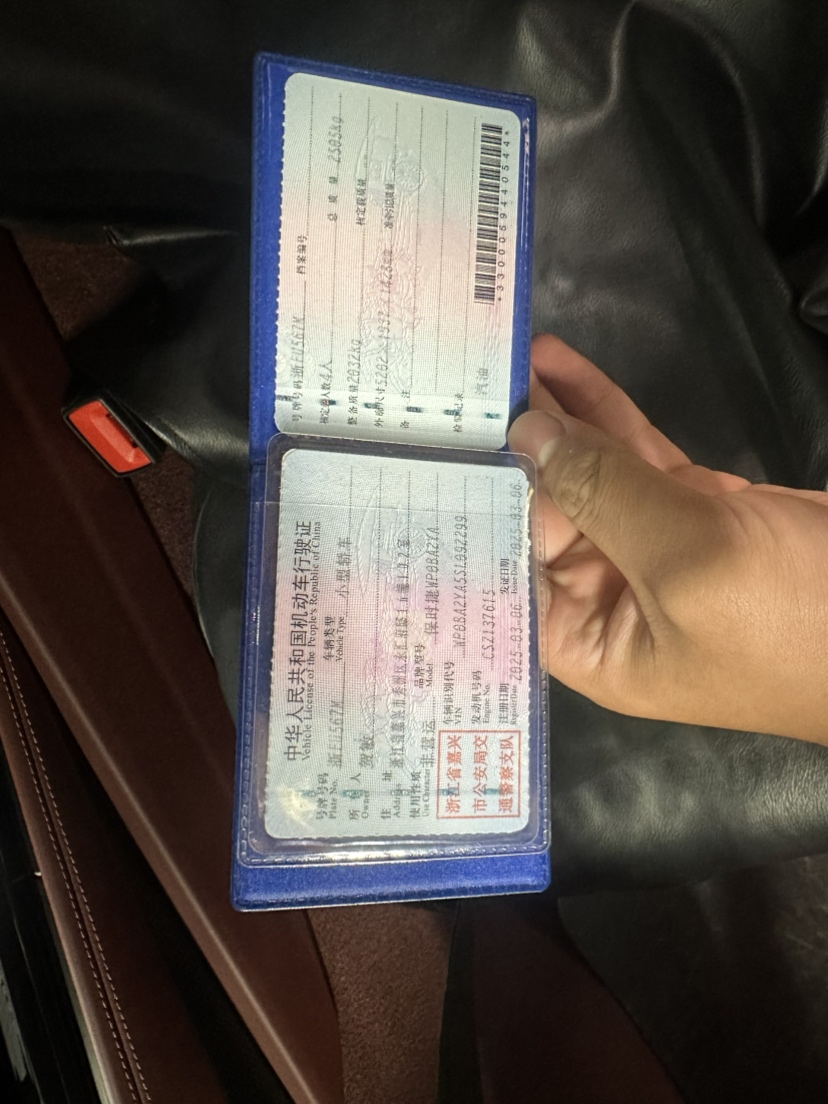 中华人民共和国机动车行驶证
Vehicle License of the People's Republic of China
号牌号码 浙FU567M 车辆类型 小型轿车
Plate No. Vehicle Type
所有人 贺敏
Owner
住址 浙江省嘉兴市秀洲区
Address
使用性质 非营运 品牌型号 保时捷WP0BA2YA
Use Character Model
浙江省嘉兴
市公安局交
通警察支队
车辆识别代号 WP0BA2YA5SL092299
VIN
发动机号码 CSZ137615
Engine No.
注册日期 2025-03-06 发证日期 2025-03-06
Register Date Issue Date
号牌号码 浙FU567M 档案编号
核定载人数 4人 总质量 2505kg
整备质量 2032kg 核定载质量
外廓尺寸 5202×1937×1423mm 准牵引总质量
备注
检验记录
汽油
*3300059440544*